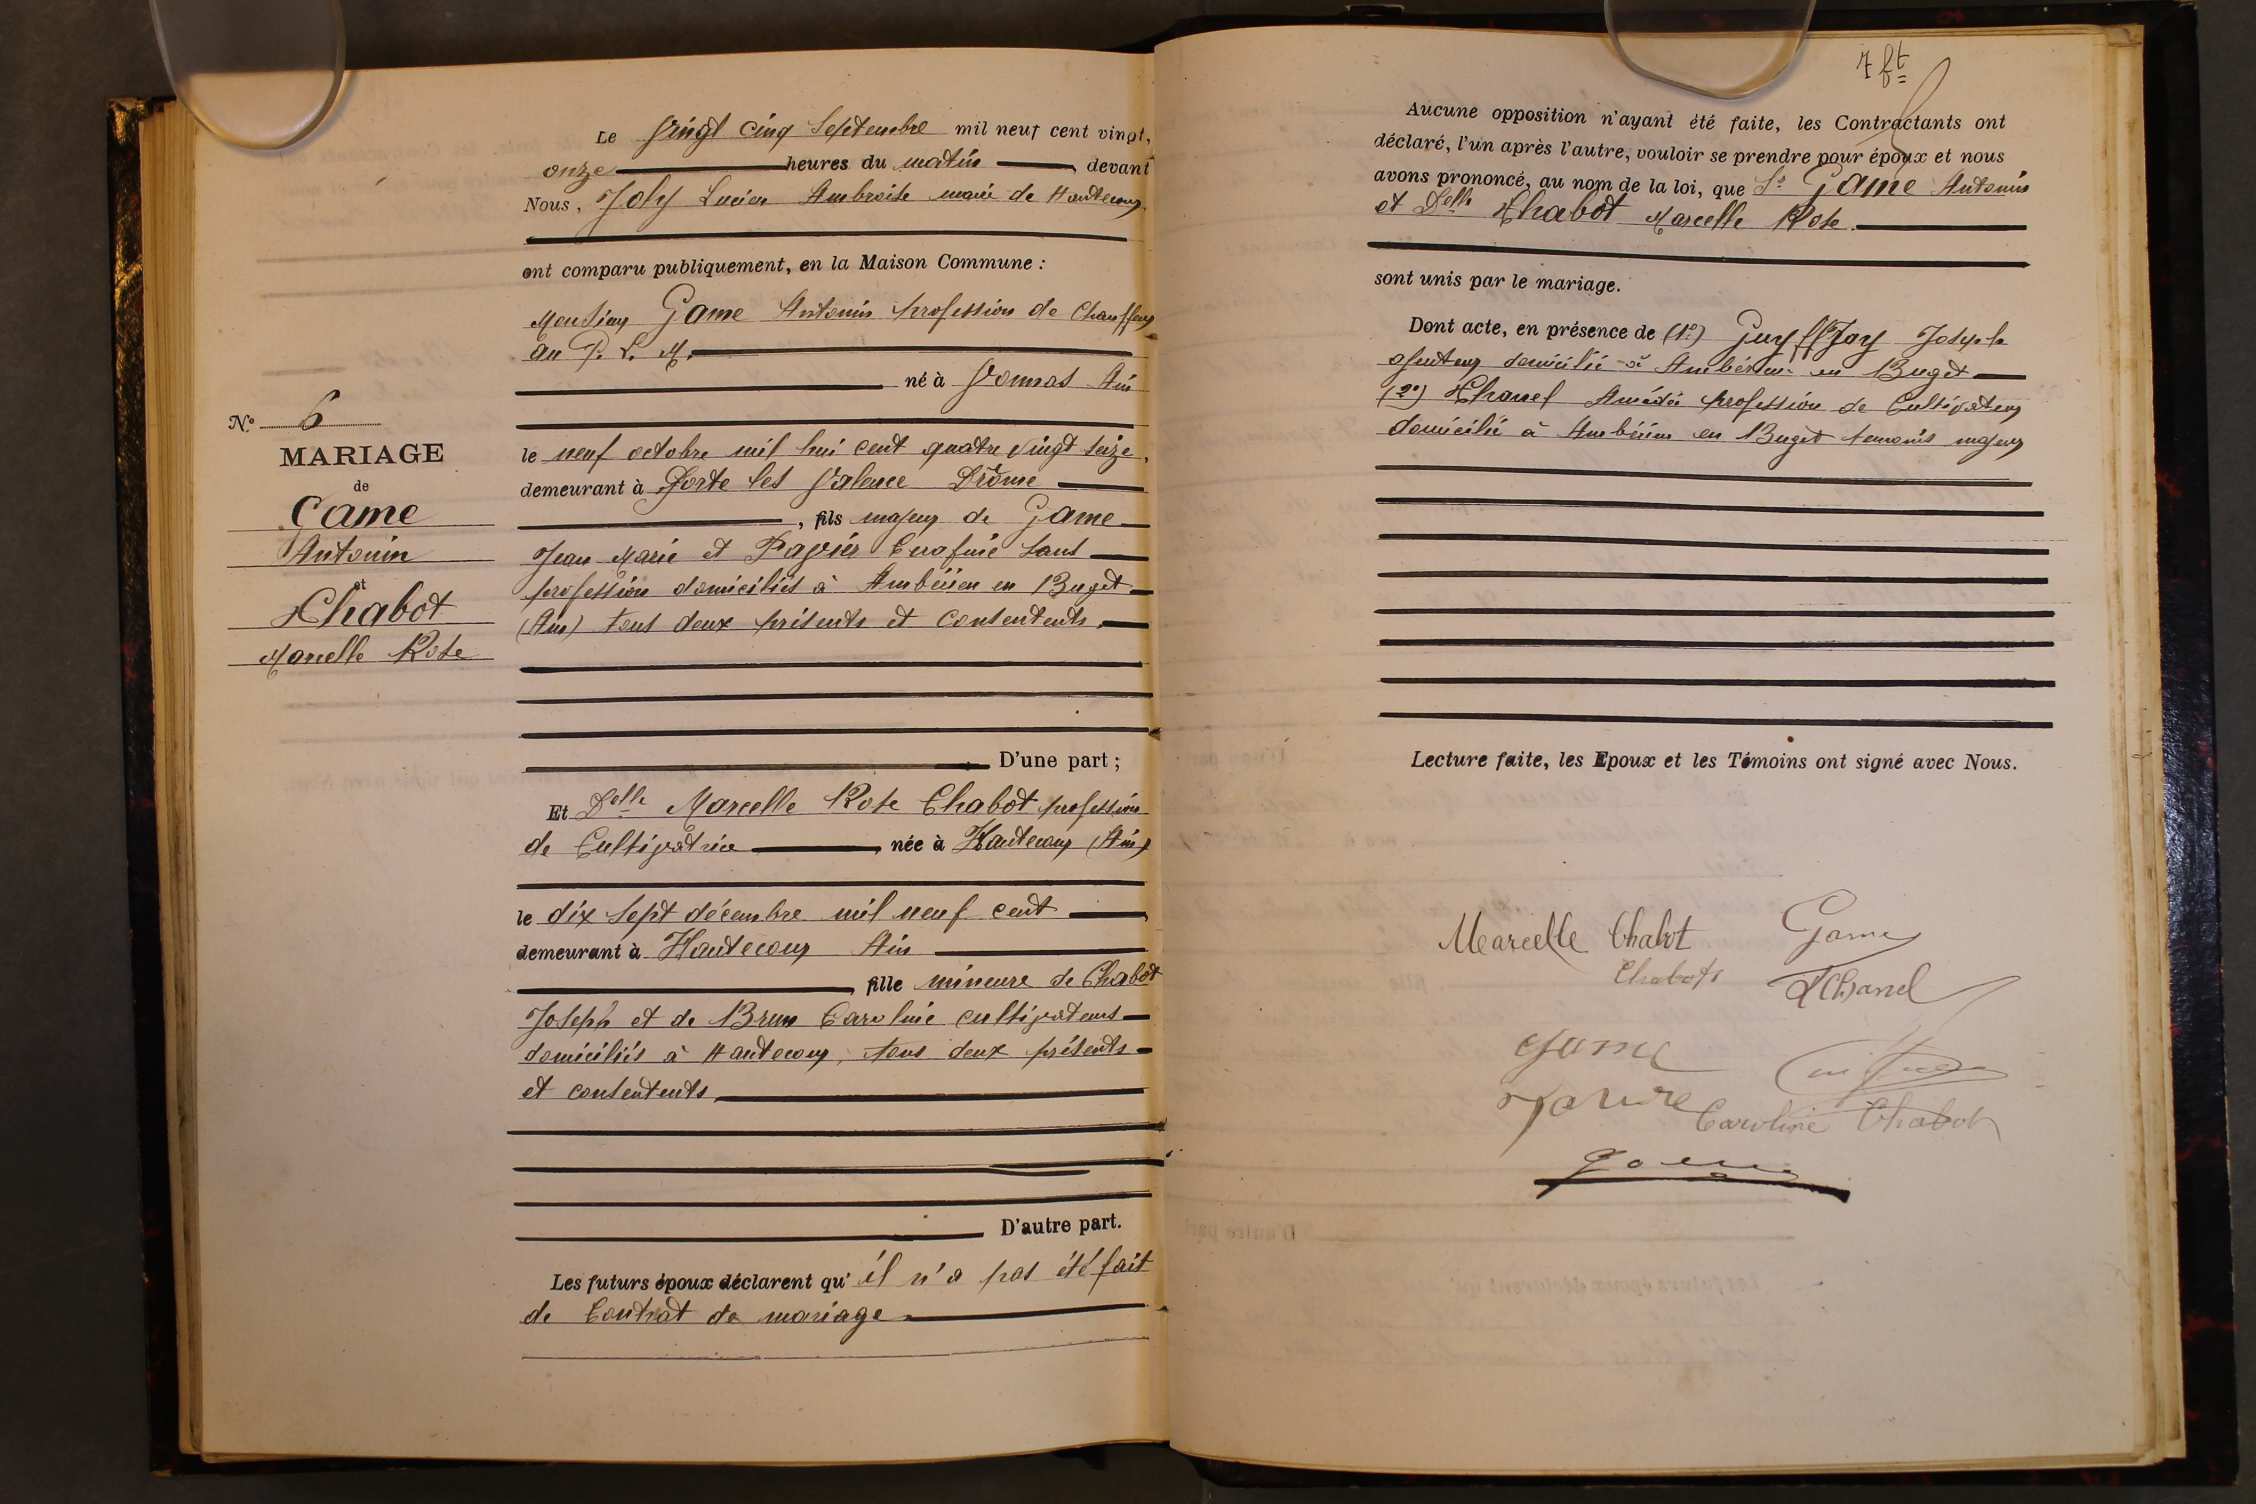 N° 6
MARIAGE
de
Game
Antonin
et
Chabot
Marcelle Rose
Le vingt cinq Septembre mil neuf cent vingt,
onze heures du matin, devant
Nous, Joly Lucien Ambroise maire de Hautecour
ont comparu publiquement, en la Maison Commune :
Monsieur Game Antonin profession de Chauffeur
au P. L. M.
né à Vonnas Ain
le neuf octobre mil hui cent quatre vingt seize,
demeurant à Porte les Valence Drôme
, fils majeur de Game
Jean Marie et Pagnier sans
profession domiciliés à Ambérieu en Buget
(Ain) tous deux présents et consentents,
D'une part ;
Et Delle Marcelle Rose Chabot profession
de Cultivatrice, née à Hautecour (Ain)
le dix sept décembre mil neuf cent
demeurant à Hautecour Ain
fille mineure de Chabot
Joseph et de Brun Caroline cultivateurs
domiciliés à Hautecour, tous deux présents
et consentents
D'autre part.
Les futurs époux déclarent qu' il n'a pas été fait
de Contrat de mariage
7 ft
Aucune opposition n'ayant été faite, les Contractants ont
déclaré, l'un après l'autre, vouloir se prendre pour époux et nous
avons prononcé, au nom de la loi, que Sr Game Antonin
et Delle Chabot Marcelle Rose
sont unis par le mariage.
Dont acte, en présence de (1°) Guyffray Joseph
ajusteur domicilié à Ambérieu en Buget
(2°) Chanel Amédée profession de Cultivateur
domicilié à Ambérieu en Buget temoins majeurs
Lecture faite, les Epoux et les Témoins ont signé avec Nous.
Marcelle Chabot Game
Chabot Chanel
Game
Caroline Chabot